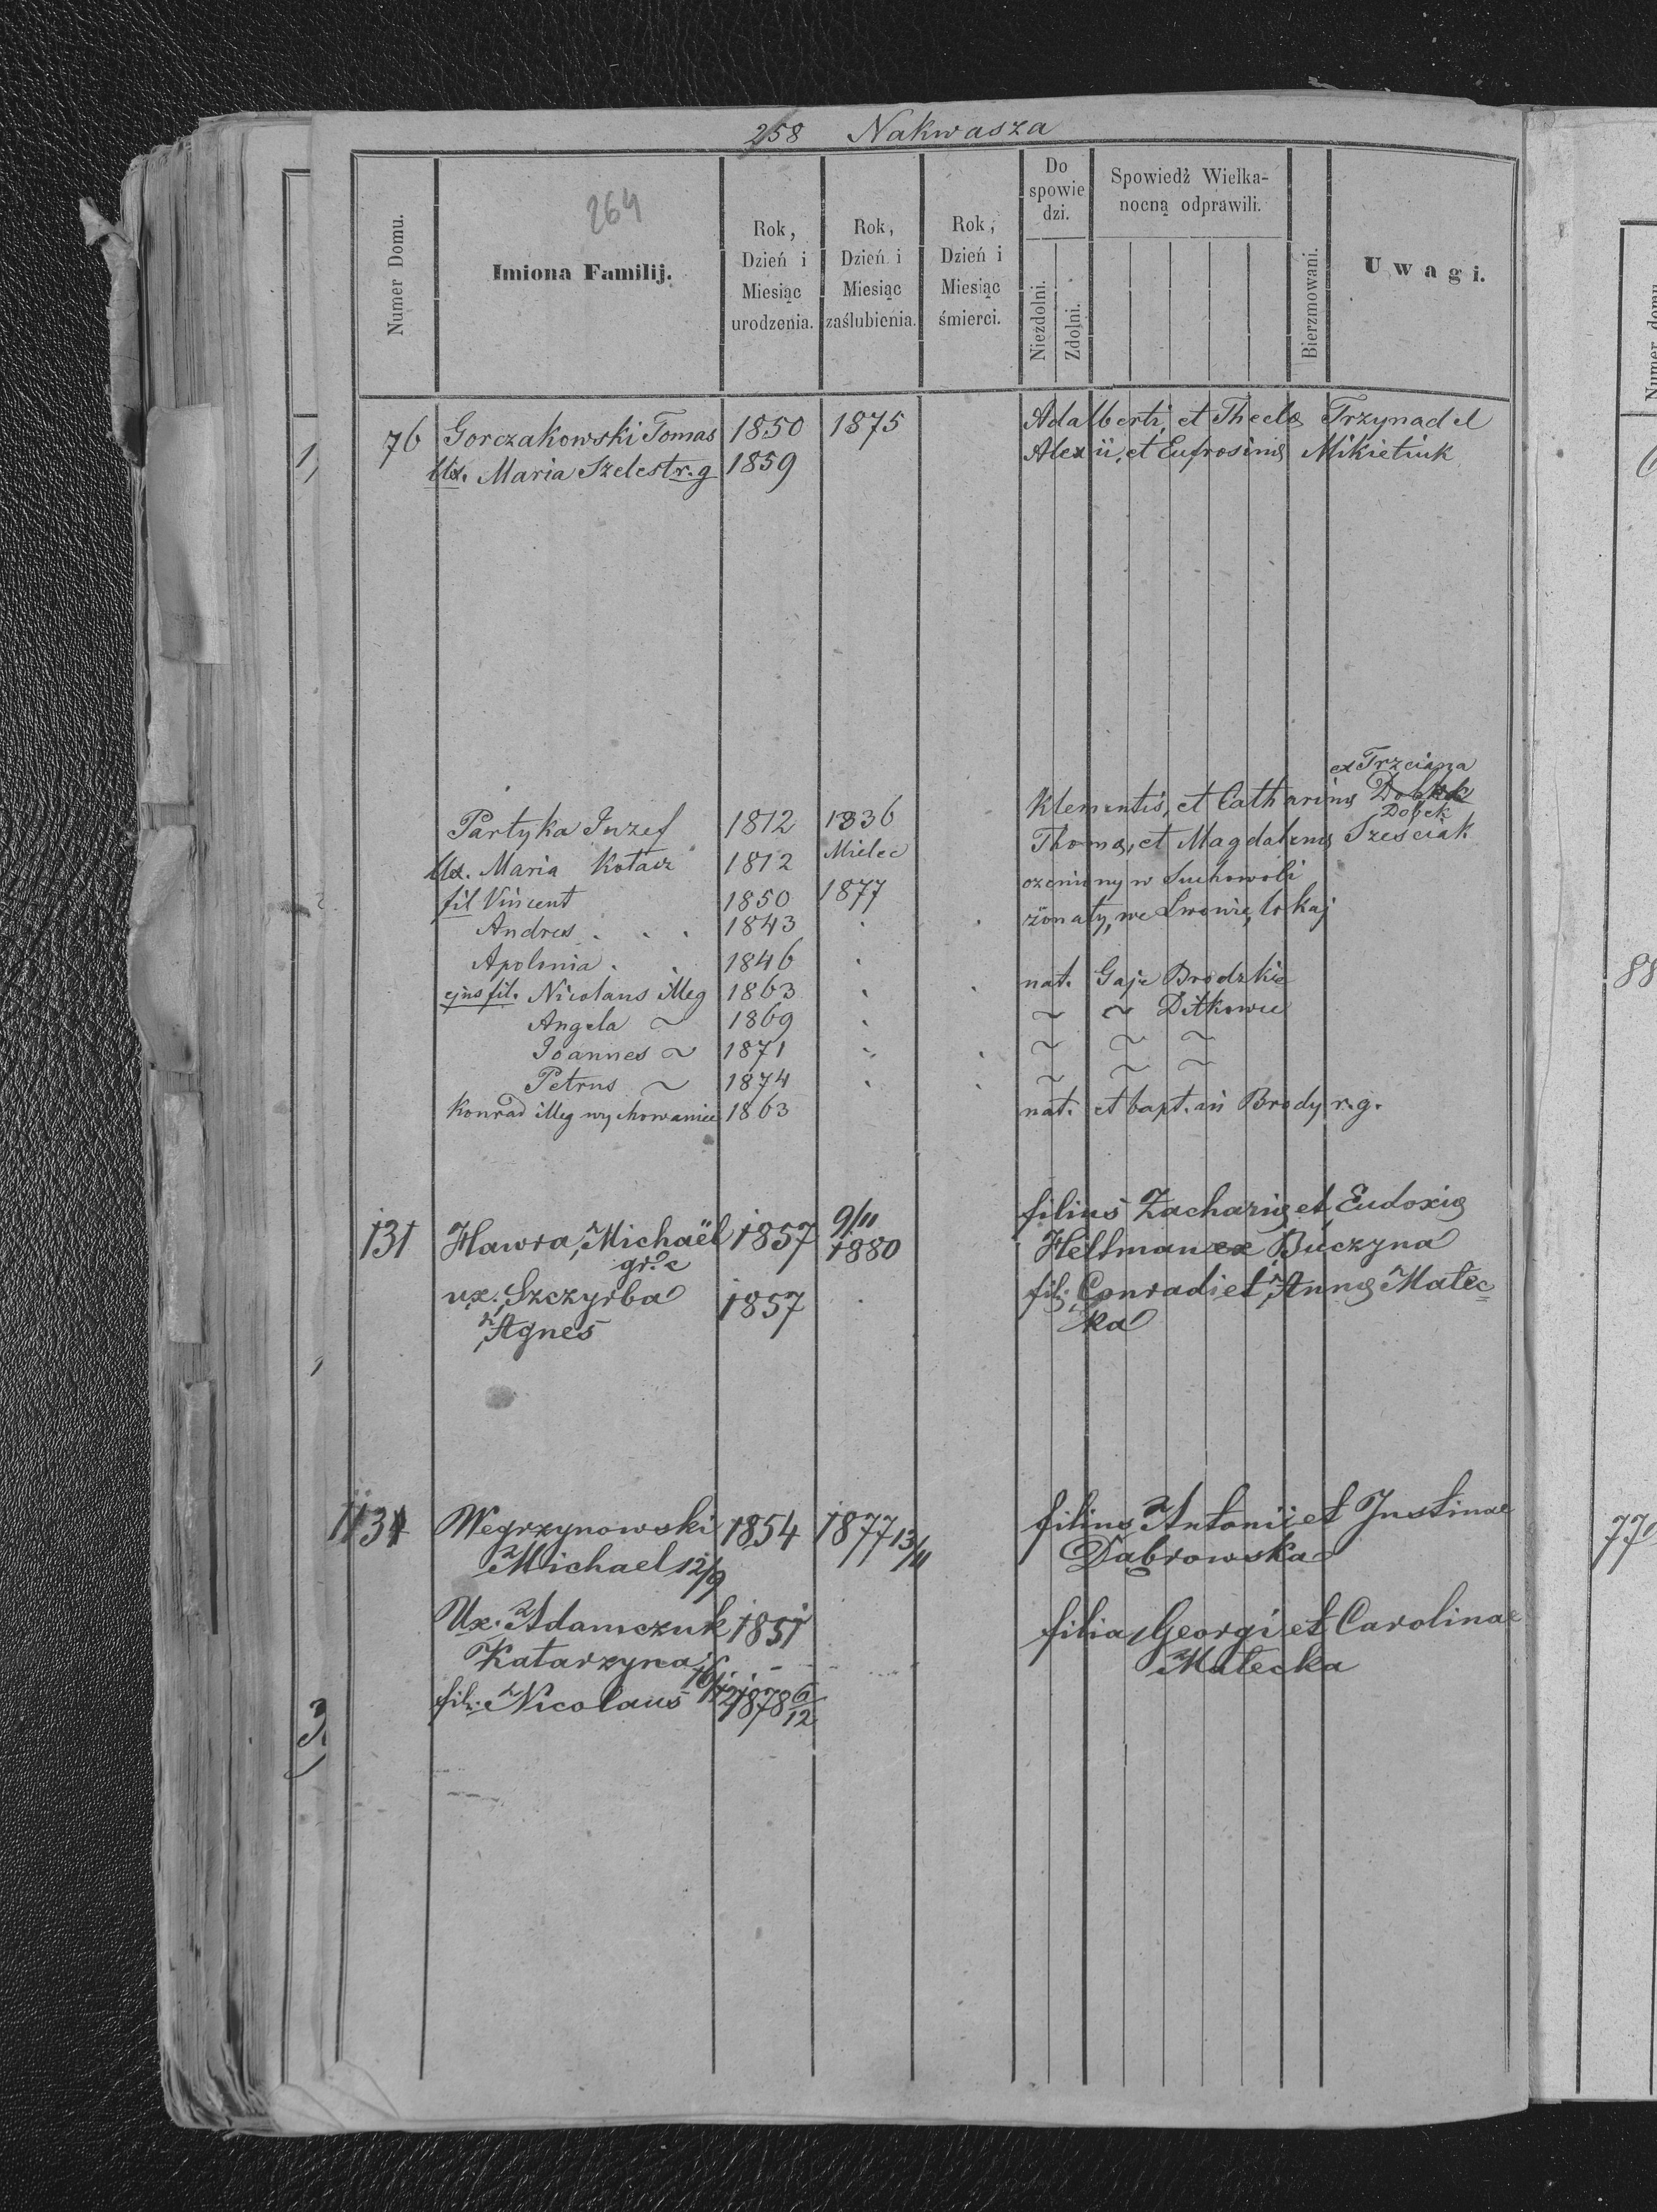 258 Nakwasza
264
Numer Domu.
Imiona Familij.
Rok, Dzień i Miesiąc urodzenia.
Rok, Dzień i Miesiąc zaślubienia.
Rok, Dzień i Miesiąc śmierci.
Do spowiedzi.
Niezdolni.
Zdolni.
Spowiedź Wielkanocną odprawili.
Bierzmowani.
Uwagi.
76 Gorczakowski Tomas 1850 1875 Adalberti, et Theclę Trzynadel
Ux. Maria Szelest r.g 1859 Alexii, et Eufrosinę Mikietiuk
ex Trzciana
Partyka Juzef 1812 1836 Klementis, et Catharinę Dobek
Dobek
Ux. Maria Kołacz 1812 Mielec Thomę, et Magdalenę Sześciak
fil Vincent 1850 1877 ożeniony w Suchowoli
Andreas 1843 żonaty, we Lwowie, lokaj
Apolonia 1846
ejus fil. Nicolaus illeg 1863 nat. Gaje Brodzkie
Angela ~ 1869 ~ ~ Ditkowce
Joannes ~ 1871 ~ ~ ~
Petrus ~ 1874 ~ ~ ~
Konrad illeg wychowaniec 1863 nat. et bapt. in Brody r.g.
131 Hawra, Michaël 1857 9/11 1880 filius Zacharię et Eudoxię
gr. c Hellman ex Buczyna
ux. Szczyrba 1857 fil. Conradi et Annę Matec
Agnes ka
Wegrzynowski 1854 1877 13/11 filius Antonii et Justinae
Michael 12/9 Dąbrowska
Ux. Adamczuk 1851 filia Georgi et Carolinae
Katarzyna Matecka
fil. Nicolaus 1878 6/12
88
77